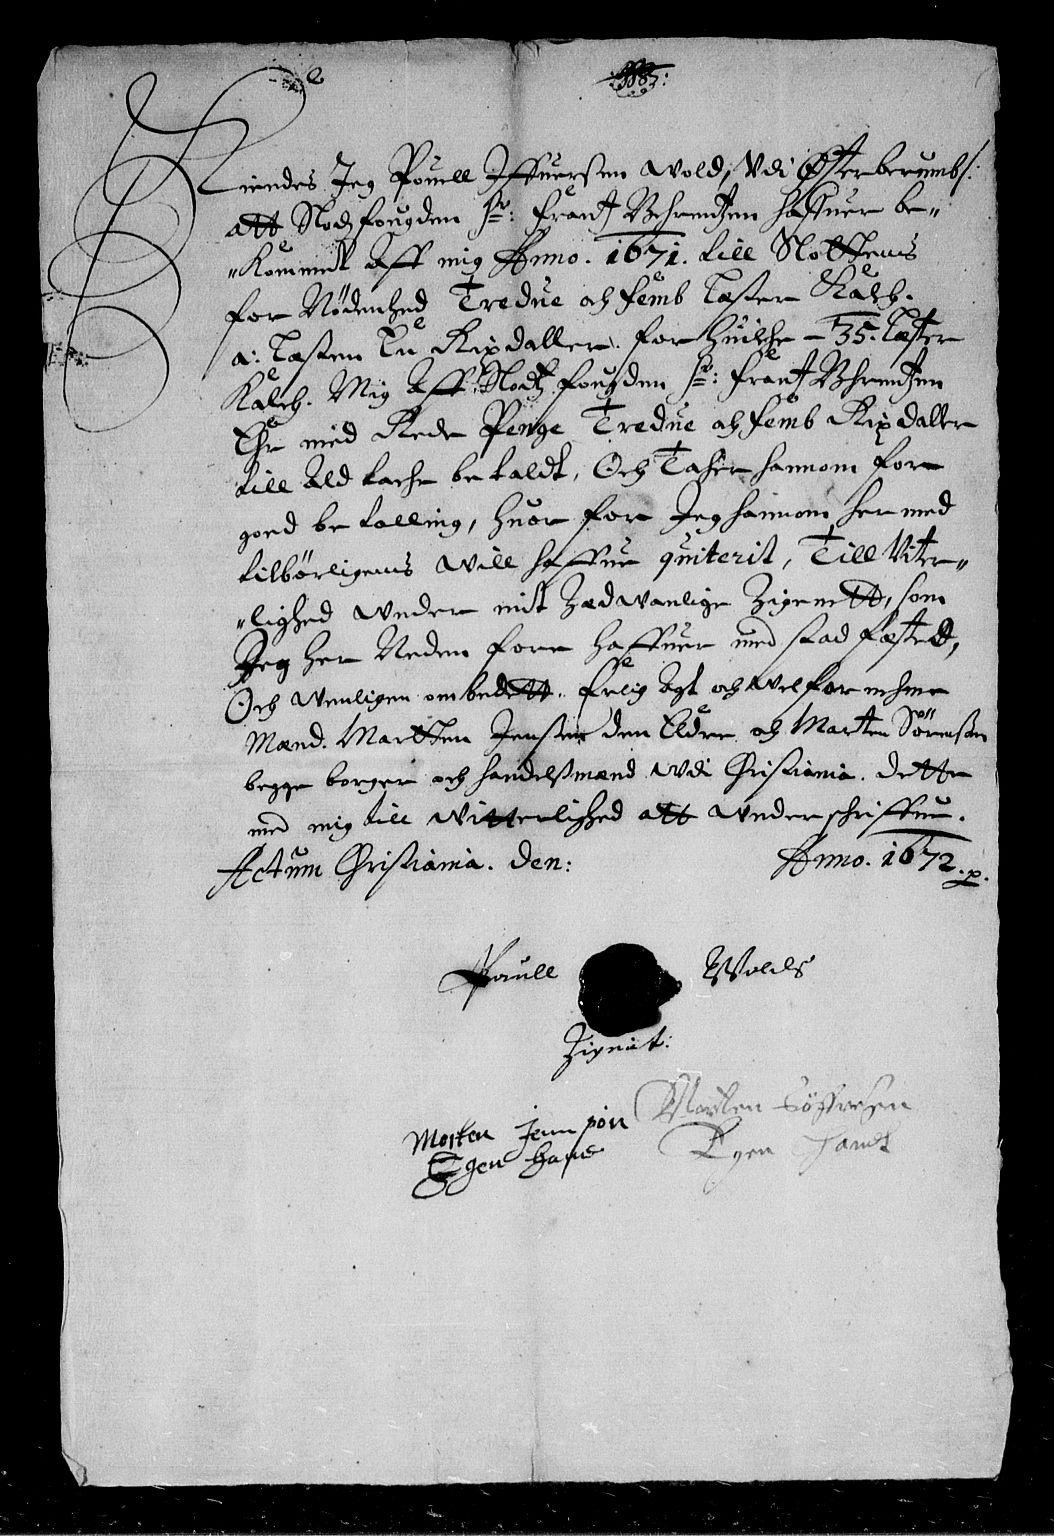 Kiendes Jeg Povell Iffuersen Wold, Vdi Østerberumb/:
att Slodtz fougden Sr: Frantz Behrendtzen haffuer be¬
¬Kommit Aff mig Anno. 1671. till Slottens
for Nødenhed Tredue och femb Læster Kalch.
a: Læsten En Rixdaller. for huilche - 35. Læster
Kalch. Mig Aff Slodtz fougden Sr: Frantz Behrendtzen
Ehr med Rede Penge Tredue och femb Rixdaller
till Ald tache betaldt, Och Tacher hannom for
goed betalling, huor for Jeg hannom her med
tilbørligens Will haffue quiterit, Till Viter¬
¬lighed under mit Zædvanlige Zigenett, som
Jeg her Neden fore haffuer med stadfæsted,
Och Venligen ombedett. Erlig Agt och Velfornehme
Mænd. Martten Jensen den Eldre och Marten Sørensen
begge borger och handelsmænd Vdi Christiania. dette
med mig till Witterlighed att underschriffue.
Actum Christiania. den: Anno. 1672. p.
Paull Wolds
Zignit:
Morten Jennsøn
Egen Hand
Morten Søffrensen
Egen Handt